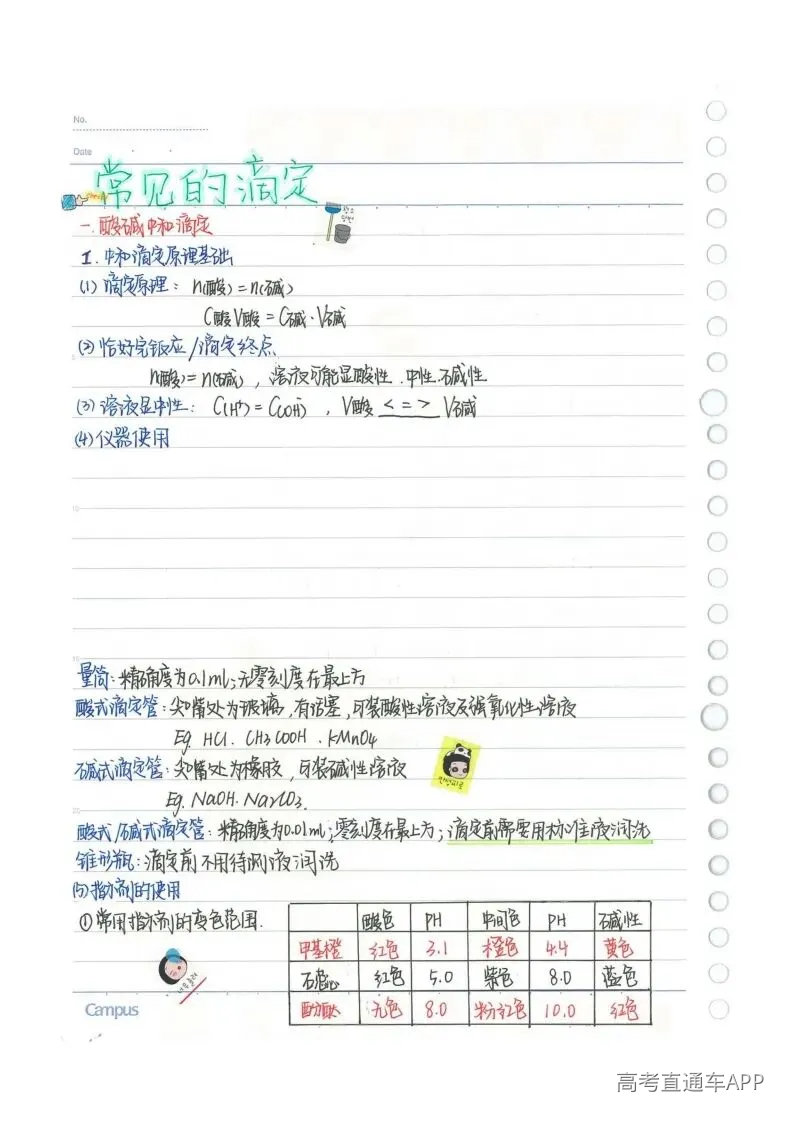 No.
Date
常见的滴定
一.酸碱中和滴定
I.中和滴定原理基础
(1)滴定原理：n(酸)=n(碱)
C酸V酸=C碱·V碱
(2)恰好完全反应/滴定终点
n(酸)=n(碱)，溶液可能显酸性.中性.碱性
(3)溶液显中性：C(H⁺)=C(OH⁻)，V酸 < = > V碱
(4)仪器使用
量筒：精确度为0.1mL；无零刻度在最上方
酸式滴定管：尖嘴处为玻璃，有活塞，可装酸性溶液及强氧化性溶液
Eg. HCl. CH3COOH. KMnO4
碱式滴定管：尖嘴处为橡胶，可装碱性溶液
Eg. NaOH. Na2CO3.
酸式/碱式滴定管：精确度为0.01mL；零刻度在最上方；滴定前需要用标准液润洗
锥形瓶：滴定前不用待测液润洗
(5)指示剂的使用
①常用指示剂的变色范围.
酸色 PH 中间色 PH 碱性
甲基橙 红色 3.1 橙色 4.4 黄色
石蕊 红色 5.0 紫色 8.0 蓝色
酚酞 无色 8.0 粉红色 10.0 红色
Campus
高考直通车APP